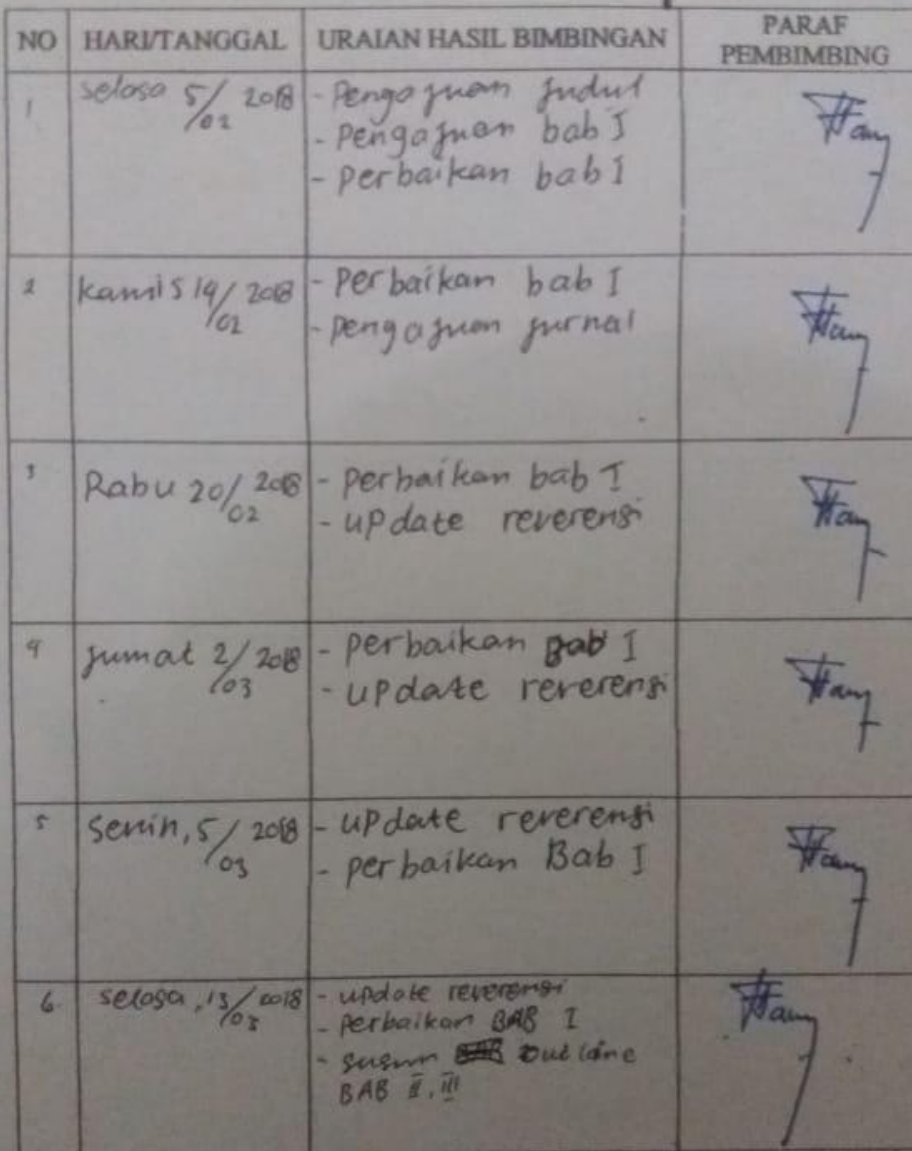 NO HARI/TANGGAL URAIAN HASIL BIMBINGAN PARAF PEMBIMBING
1 selasa 5/02 2018 - Pengajuan judul
- Pengajuan bab I
- Perbaikan bab I
2 kamis 14/02 2018 - Perbaikan bab I
- Pengajuan jurnal
3 Rabu 20/02 2018 - perbaikan bab I
- update reverensi
4 jumat 2/03 2018 - perbaikan bab I
- update reverensi
5 Senin, 5/03 2018 - update reverensi
- perbaikan Bab I
6. selasa, 13/03 2018 - update reverensi
- perbaikan BAB I
- susun outline
BAB II, III